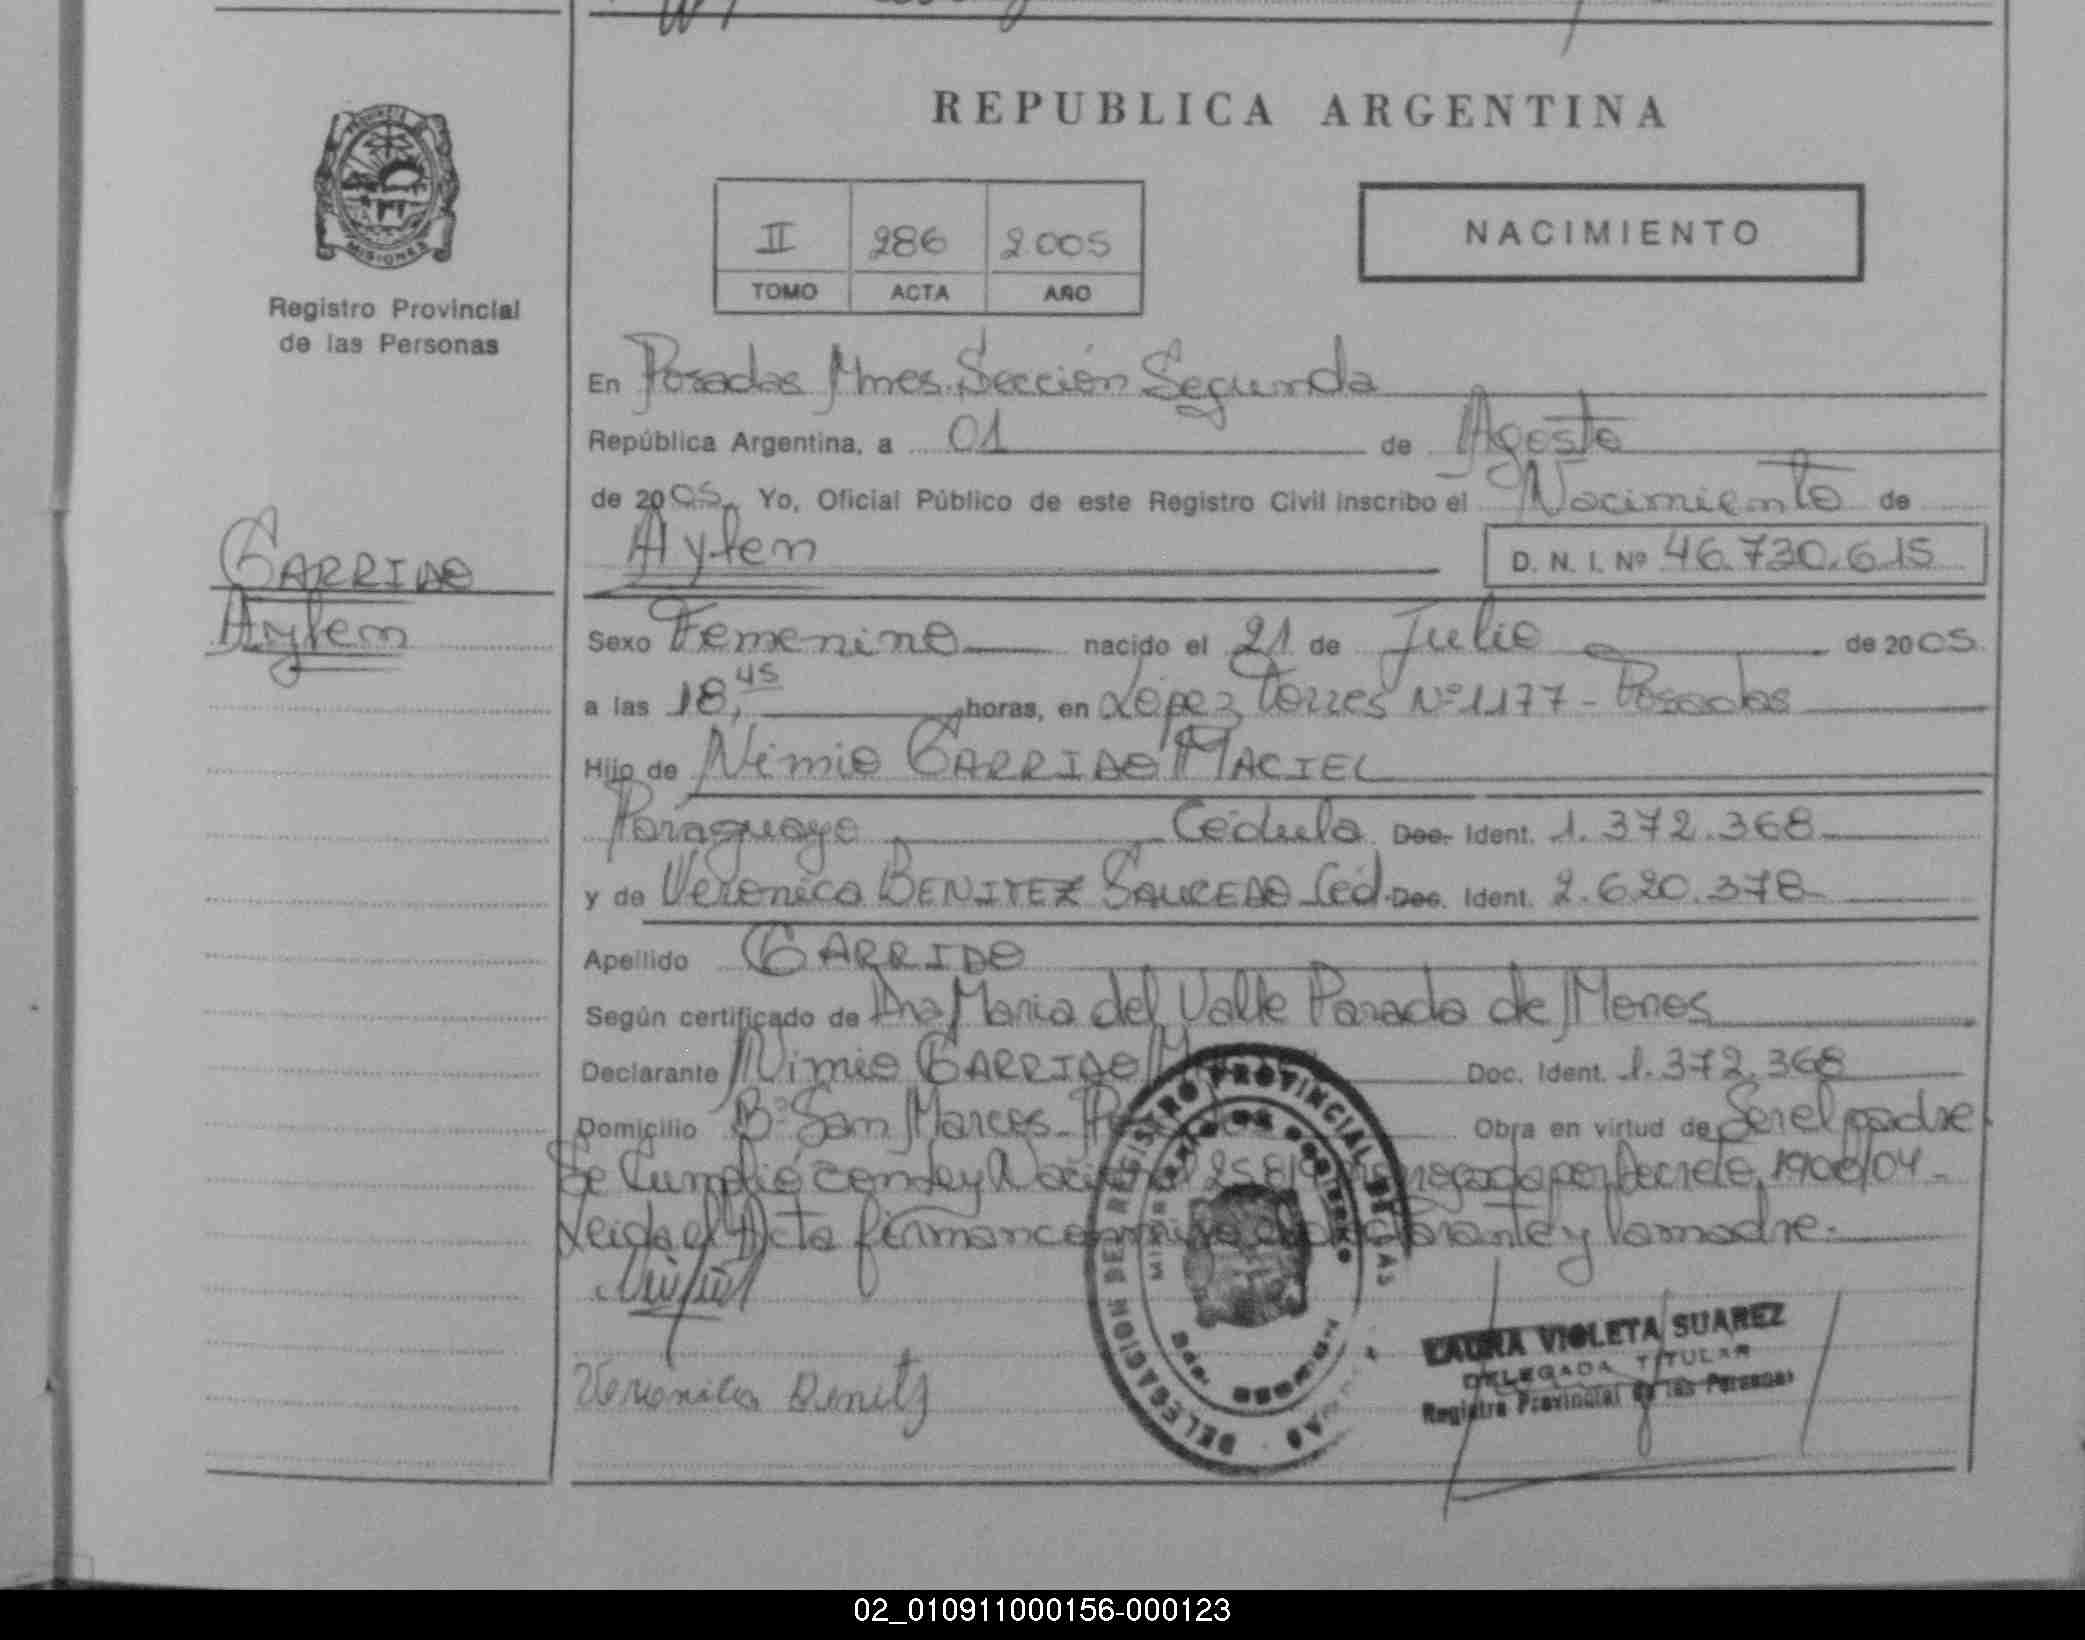 REPUBLICA ARGENTINA
PROVINCIA DE
MISIONES
Registro Provincial
de las Personas
II 286 2005
TOMO ACTA AÑO
NACIMIENTO
En Posadas Mnes. Sección Segunda
República Argentina, a 01 de Agosto
de 2005. Yo, Oficial Público de este Registro Civil inscribo el Nacimiento de
Aylen D. N. I. Nº 46.730.615
GARRIDO
Aylen
Sexo Femenino nacido el 21 de Julio de 2005.
a las 18,45 horas, en López Torres Nº 1177 - Posadas
Hijo de Nimio GARRIDO MACIEL
Paraguayo Cédula Doc. Ident. 1.372.368
y de Veronica BENITEZ SAUCEDO Céd. Doc. Ident. 2.620.378
Apellido GARRIDO
Según certificado de Ana Maria del Valle Parada de Menes
Declarante Nimio GARRIDO Doc. Ident. 1.372.368
Domicilio Bº San Marcos - Obra en virtud de Ser el padre
Se Cumplió con Ley por Decreto 1906/04 -
Leida el Acta firman conmigo el declarante y la madre.
Veronica Benitez
DELEGACION DEL REGISTRO PROVINCIAL DE LAS
MINISTERIO DE GOBIERNO
LAURA VIOLETA SUAREZ
DELEGADA TITULAR
Registro Provincial de las Personas
02_010911000156-000123